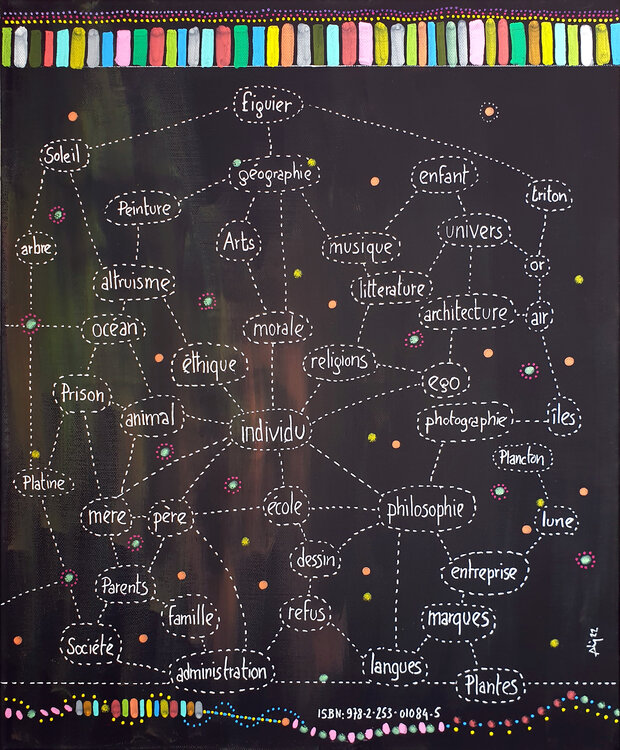 figuier
Soleil
géographie
enfant
triton
Peinture
univers
arbre
Arts
musique
or
altruisme
littérature
architecture
air
océan
morale
éthique
religions
ego
Prison
animal
individu
photographie
îles
Plancton
Platine
mère
père
école
philosophie
lune
dessin
entreprise
Parents
famille
refus
marques
Société
administration
langues
Plantes
ISBN: 978-2-253-01084-5